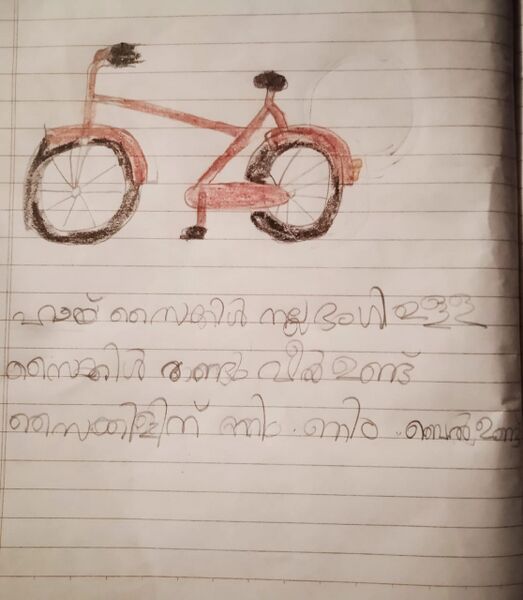 സൈക്കിൾ നല്ല ഭംഗി ഉള്ള
സൈക്കിൾ രണ്ടും വീൽ ഉണ്ട്
സൈക്കിളിന് ബെൽ ഉണ്ട്